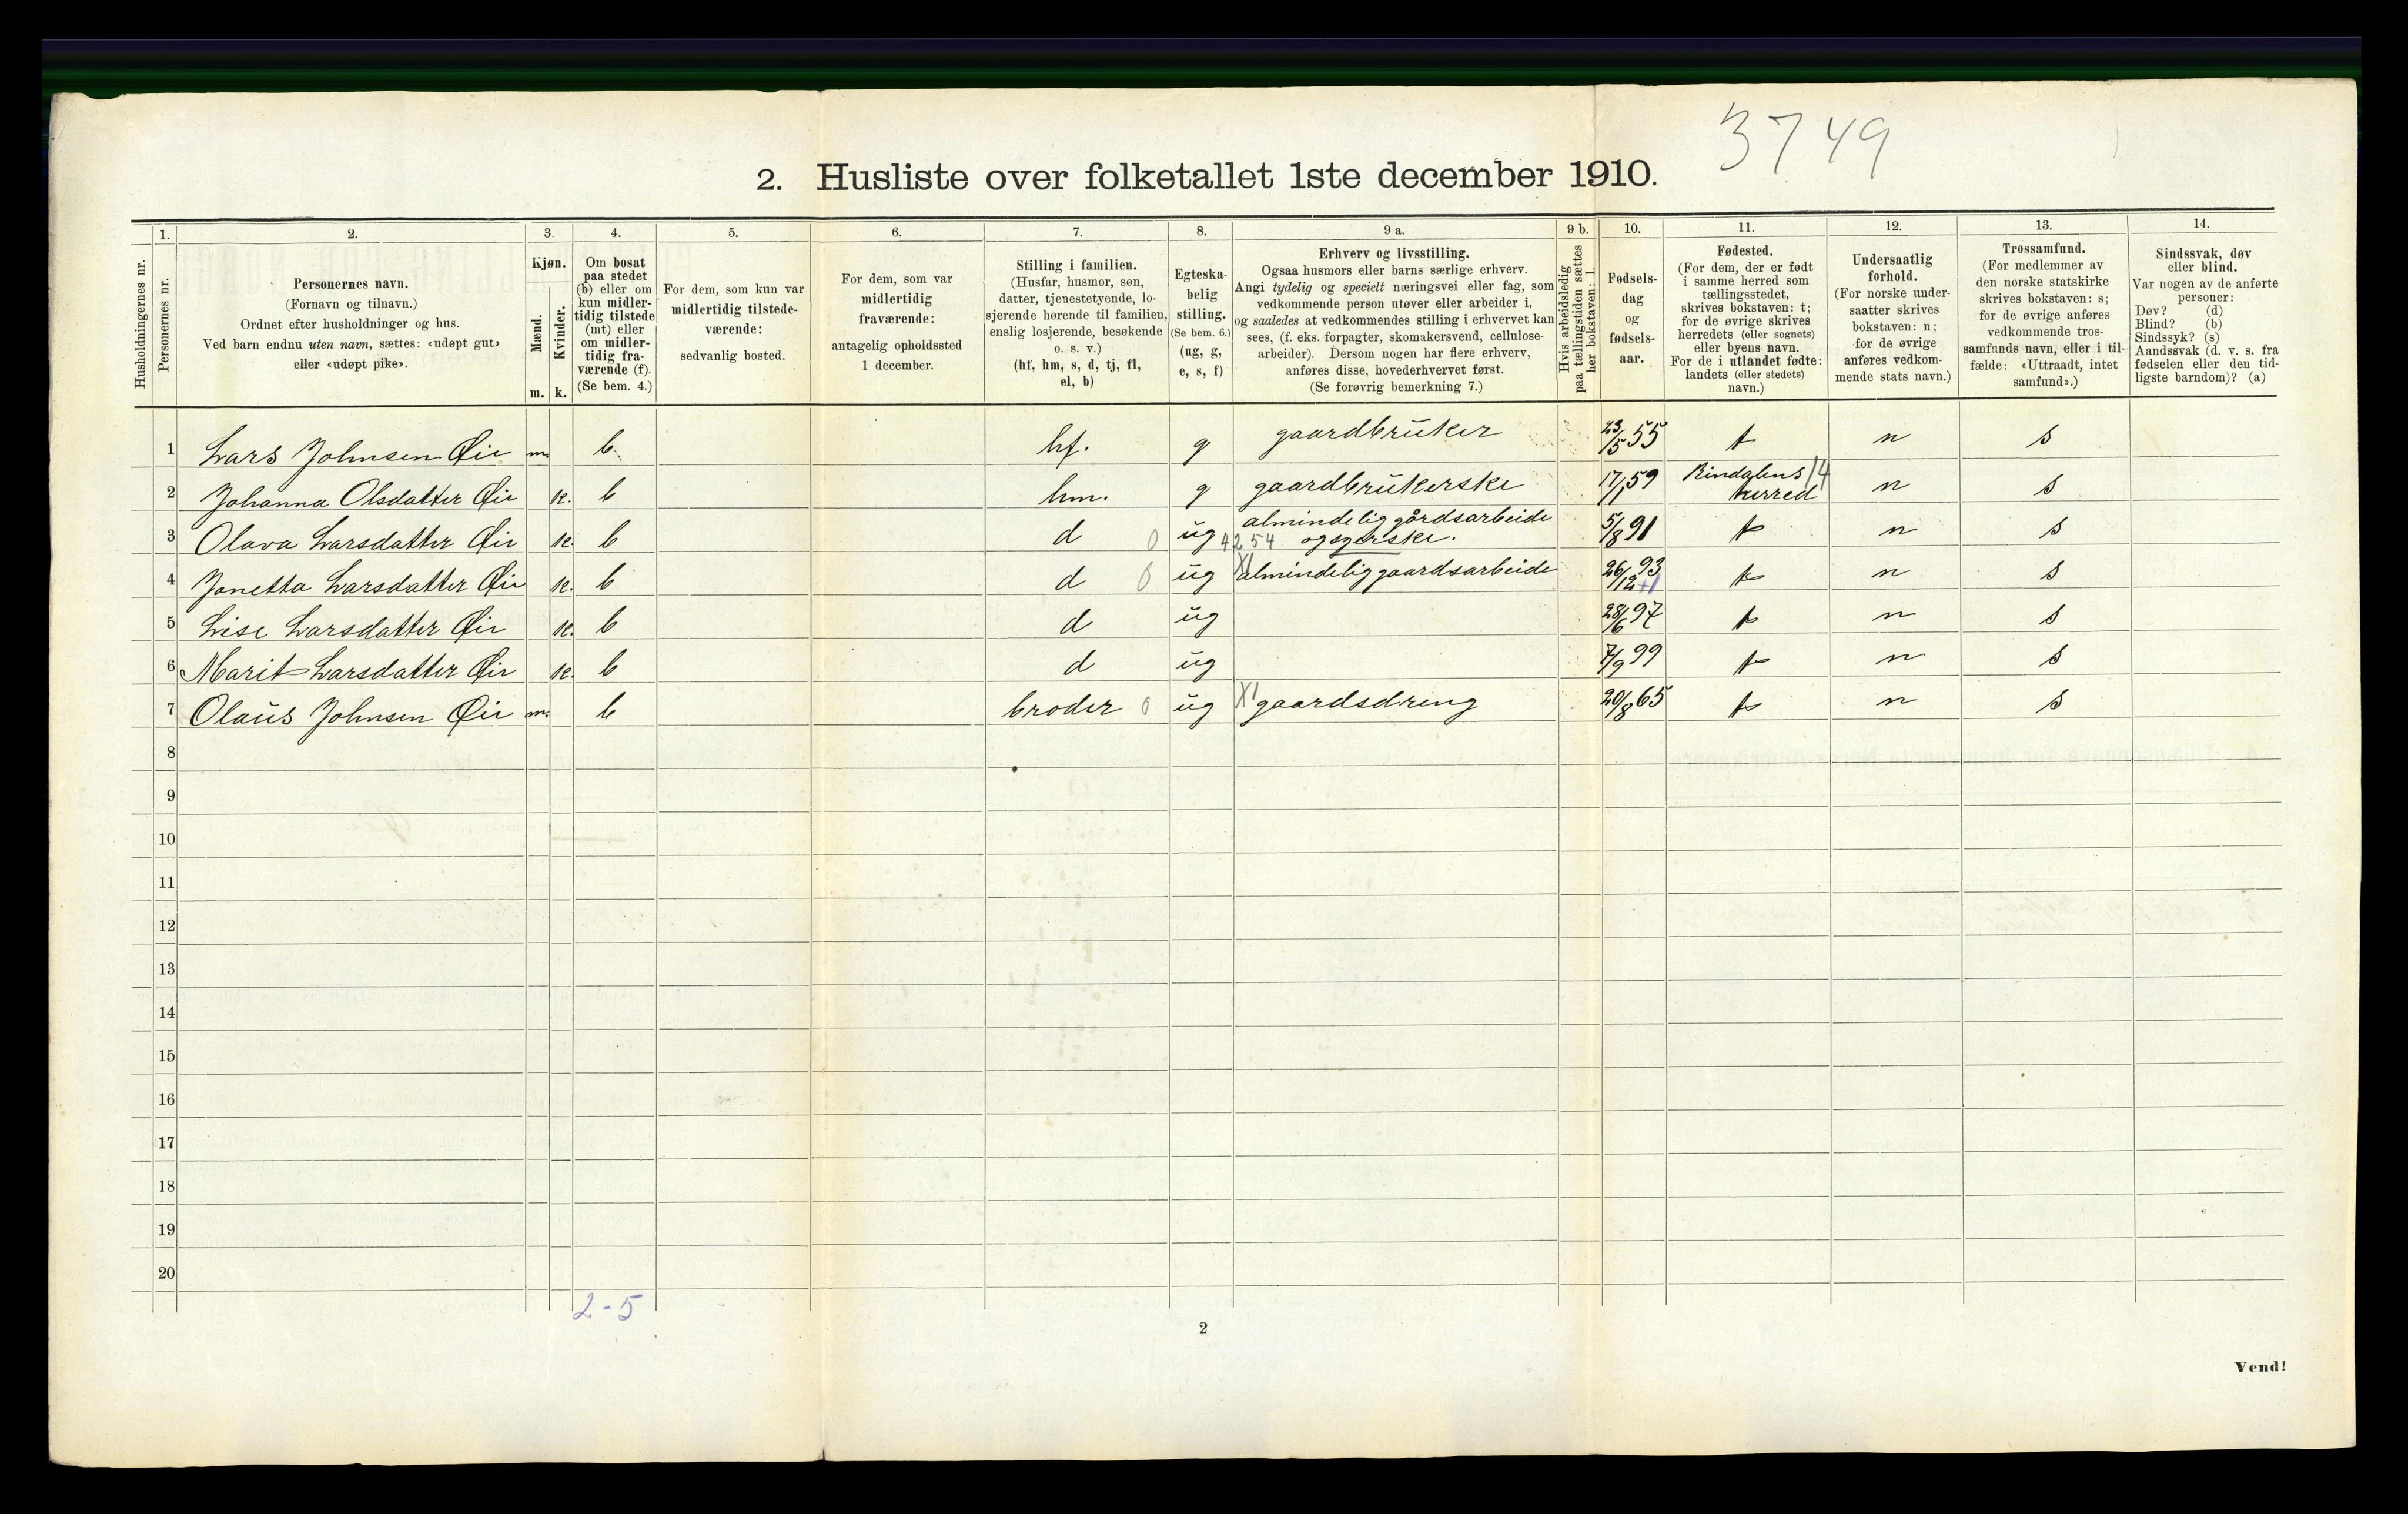 3749
2. Husliste over folketallet 1ste december 1910.
Husholdningernes nr.
1.
Personernes nr.
2.
Personernes navn.
(Fornavn og tilnavn.)
Ordnet efter husholdninger og hus.
Ved barn endnu uten navn, sættes: «udøpt gut»
eller «udøpt pike».
3.
Kjøn.
Mænd.
Kvinder.
m. k.
4.
Om bosat
paa stedet
(b) eller om
kun midler-
tidig tilstede
(mt) eller
om midler-
tidig fra-
værende (f).
(Se bem. 4.)
5.
For dem, som kun var
midlertidig tilstede-
værende:
sedvanlig bosted.
6.
For dem, som var
midlertidig
fraværende:
antagelig opholdssted
1 december.
7.
Stilling i familien.
(Husfar, husmor, søn,
datter, tjenestetyende, lo-
sjerende hørende til familien,
enslig losjerende, besøkende
o. s. v.)
(hf, hm, s, d, tj, fl,
el, b)
8.
Egteska-
belig
stilling.
(Se bem. 6.)
(ug, g,
e, s, f)
9 a.
Erhverv og livsstilling.
Ogsaa husmors eller barns særlige erhverv.
Angi tydelig og specielt næringsvei eller fag, som
vedkommende person utøver eller arbeider i,
og saaledes at vedkommendes stilling i erhvervet kan
sees, (f. eks. forpagter, skomakersvend, cellulose-
arbeider). Dersom nogen har flere erhverv,
anføres disse, hovederhvervet først.
(Se forøvrig bemerkning 7.)
9 b.
Hvis arbeidsledig
paa tællingstiden sættes
her bokstaven: l.
10.
Fødsels-
dag
og
fødsels-
aar.
11.
Fødested.
(For dem, der er født
i samme herred som
tællingsstedet,
skrives bokstaven: t;
for de øvrige skrives
herredets (eller sognets)
eller byens navn.
For de i utlandet fødte:
landets (eller stedets)
navn.)
12.
Undersaatlig
forhold.
(For norske under-
saatter skrives
bokstaven: n;
for de øvrige
anføres vedkom-
mende stats navn.)
13.
Trossamfund.
(For medlemmer av
den norske statskirke
skrives bokstaven: s;
for de øvrige anføres
vedkommende tros-
samfunds navn, eller i til-
fælde: «Uttraadt, intet
samfund».)
14.
Sindssvak, døv
eller blind.
Var nogen av de anførte
personer:
Døv? (d)
Blind? (b)
Sindssyk? (s)
Aandssvak (d. v. s. fra
fødselen eller den tid-
ligste barndom)? (a)
1 Lars Johnsen Øie m. b. hf. g gaardbruker 23/5 55 t n s
2 Johanna Olsdatter Øie k. b hm. g gaardbrukerske 17/1 59 Rindalens herred 14 n s
3 Olava Larsdatter Øie k. b d 0 ug 4254 almindelig gårdsarbeide 5/8 91 t n s
4 Jonetta Larsdatter Øie k. b d 0 ug X1 almindelig gaardsarbeide 26/12 93 +1 t n s
5 Lise Larsdatter Øie k. b d ug 28/6 97 t n s
6 Marit Larsdatter Øie k. b d ug 7/9 99 t n s
7 Olaus Johnsen Øie m. b broder 0 ug X1 gaardsdreng 20/8 65 t n s
8
9
10
11
12
13
14
15
16
17
18
19
20
2-5
2
Vend!